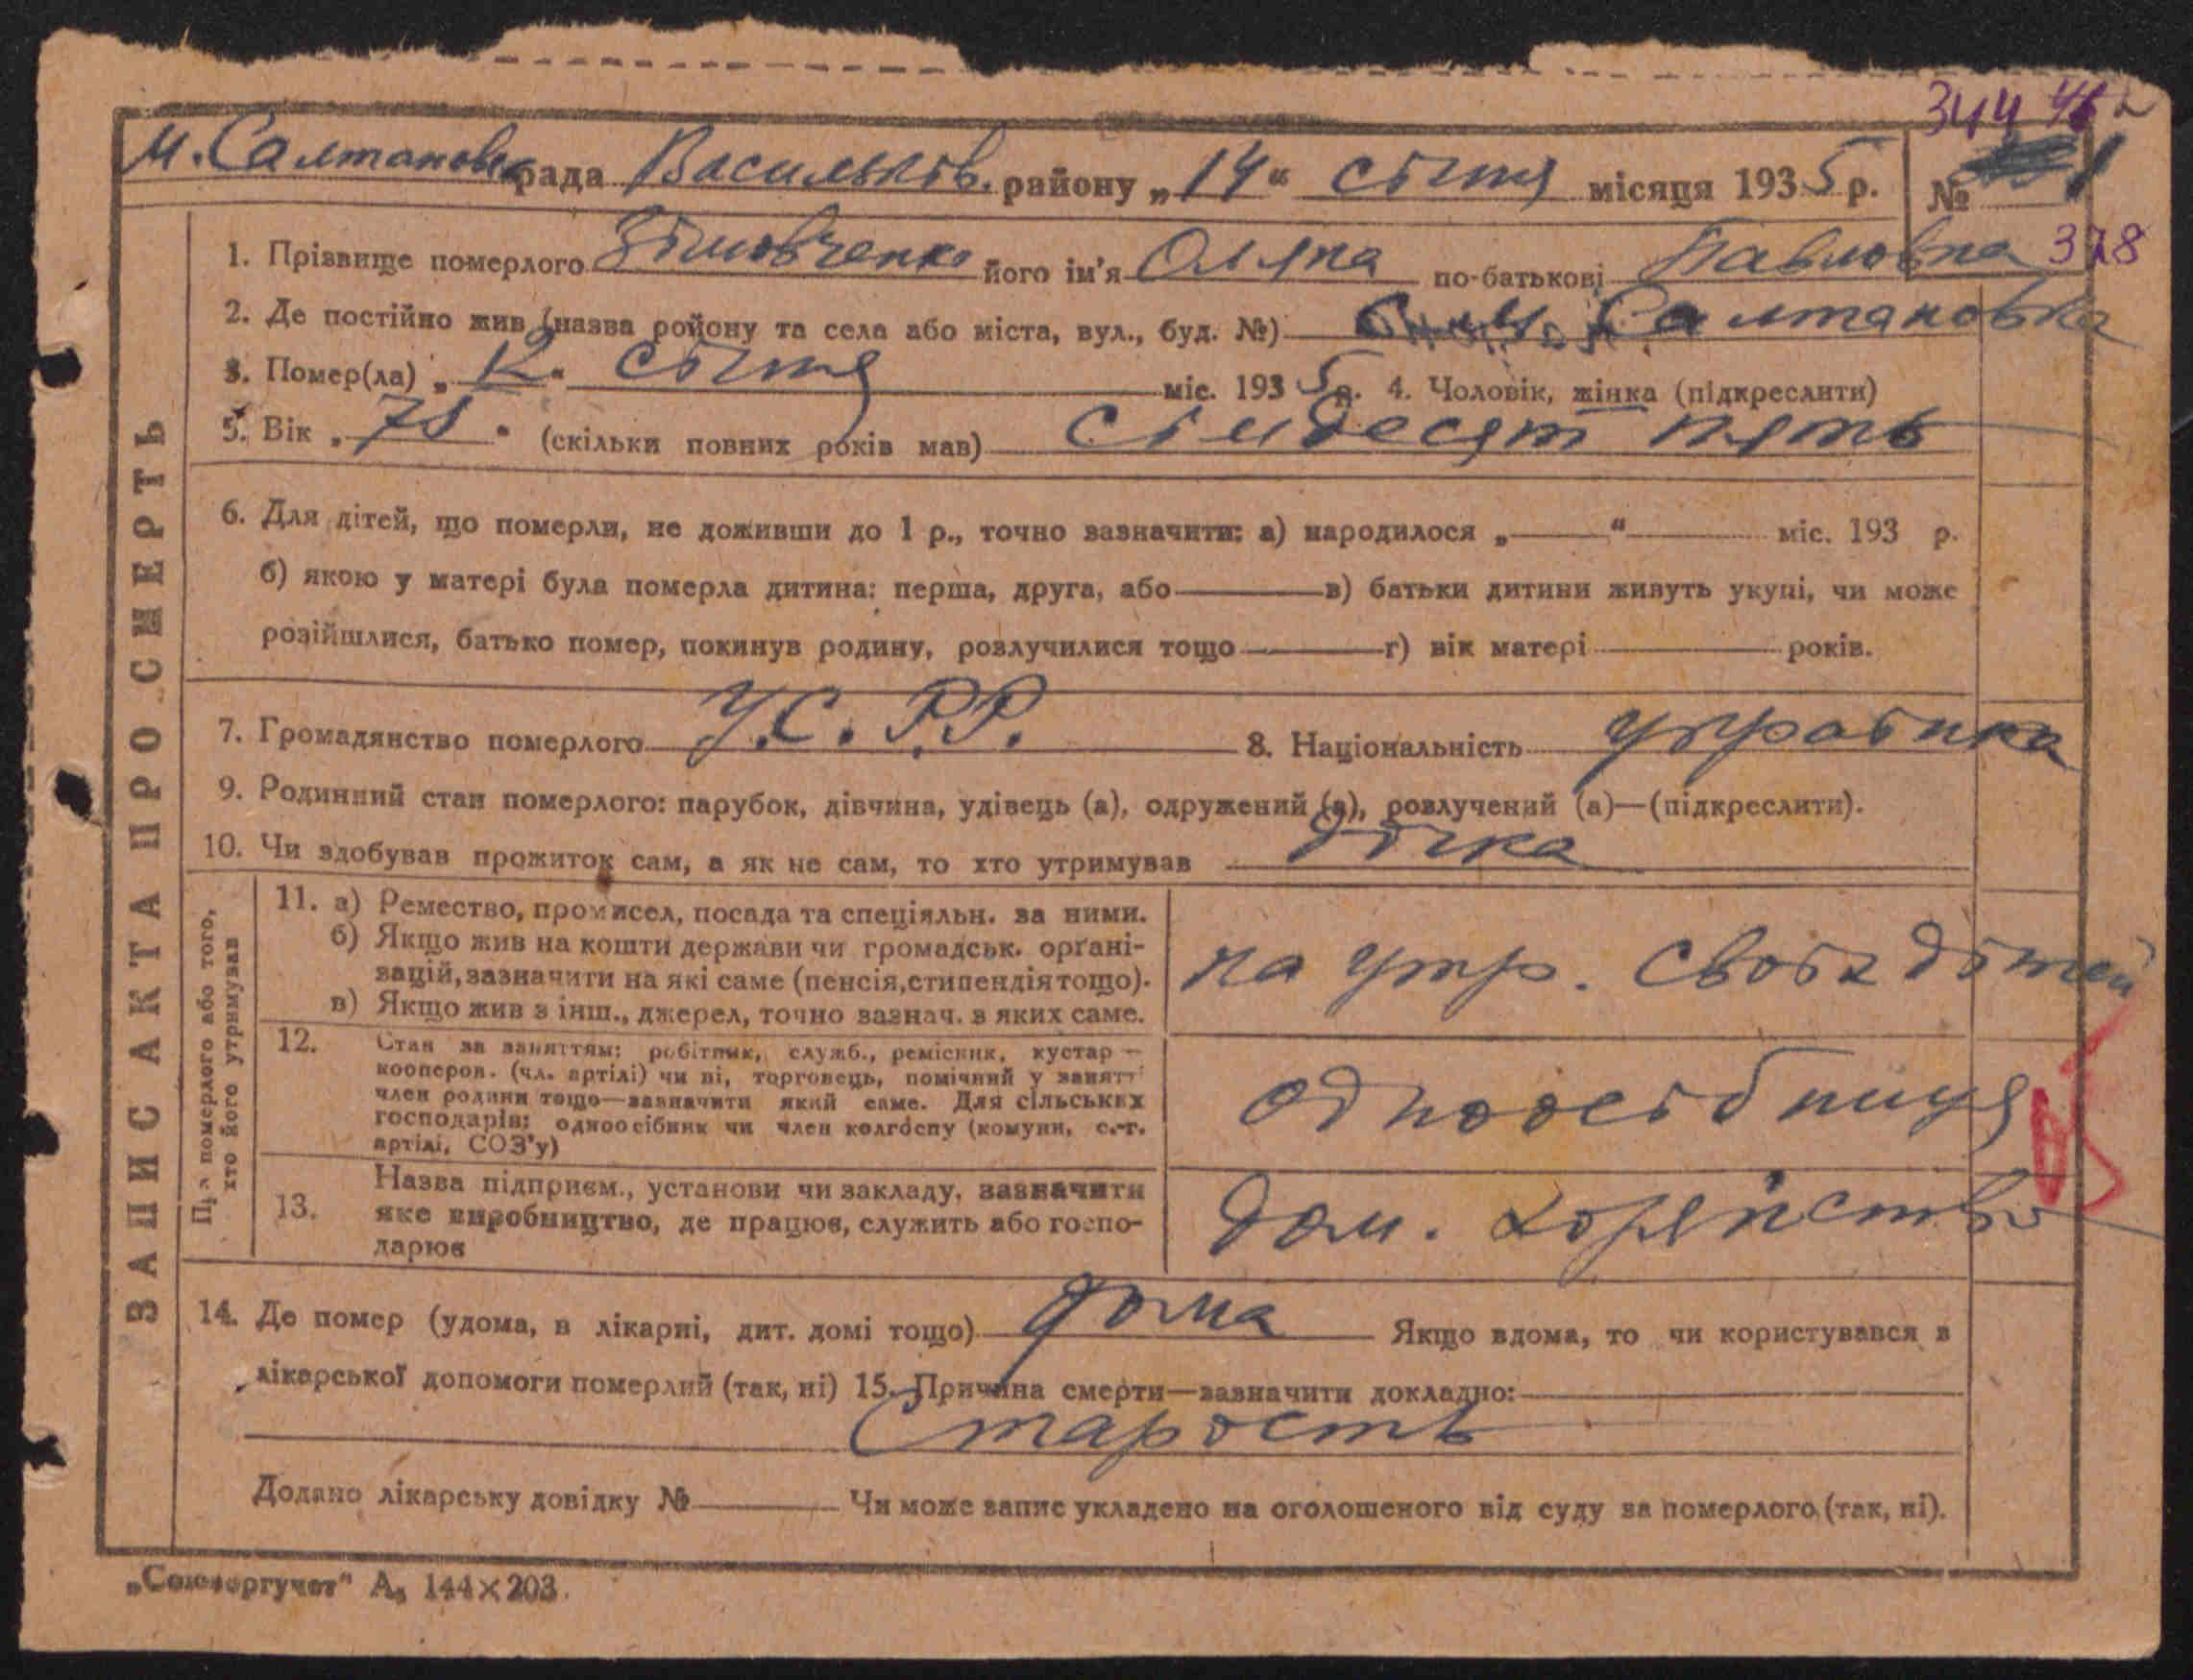 344
М. Салтановск рада Васильків. району „14“ січня місяця 1935 р. №
1. Прізвище померлого Зімовченко його ім'я Оляна по-батькові Павловна 378
2. Де постійно жив (назва району та села або міста, вул., буд. №) Салтановка
3. Помер(ла) „ “ січня міс. 1935 р. 4. Чоловік, жінка (підкреслити)
5. Вік „75“ (скільки повних років мав) сімдесят пять
6. Для дітей, що померли, не доживши до 1 р., точно зазначити: а) народилося „ “ міс. 193 р.
б) якою у матері була померла дитина: перша, друга, або в) батьки дитини живуть укупі, чи може
розійшлися, батько помер, покинув родину, розлучилися тощо г) вік матері років.
7. Громадянство померлого У.С.Р.Р. 8. Національність українка
9. Родинний стан померлого: парубок, дівчина, удівець (а), одружений (а), розлучений (а)—(підкреслити).
10. Чи здобував прожиток сам, а як не сам, то хто утримував дочка
ЗАПИС АКТА ПРО СМЕРТЬ
Про померлого або того,
хто його утримував
11. а) Ремество, промисел, посада та спеціяльн. за ними.
б) Якщо жив на кошти держави чи громадськ. органі-
зацій, зазначити на які саме (пенсія, стипендія тощо).
в) Якщо жив з інш., джерел, точно зазнач. з яких саме.
на утр. своїх дітей
12. Стан за заняттям: робітник, служб., ремісник, кустар —
кооперов. (чл. артілі) чи ні, торговець, помічний у занятті
член родини тощо—зазначити який саме. Для сільських
господарів: одноосібник чи член колгоспу (комуни, с.-г.
артілі, СОЗ'у)
одноосібниця
13. Назва підприєм., установи чи закладу, зазначити
яке виробництво, де працює, служить або госпо-
дарює
дом. хозяйство
14. Де помер (удома, в лікарні, дит. домі тощо) дома Якщо вдома, то чи користувався з
лікарської допомоги померлий (так, ні) 15. Причина смерти—зазначити докладно:
Старость
Додано лікарську довідку № Чи може запис укладено на оголошеного від суду за померлого (так, ні).
„Союзоргучет“ А₅ 144×203.